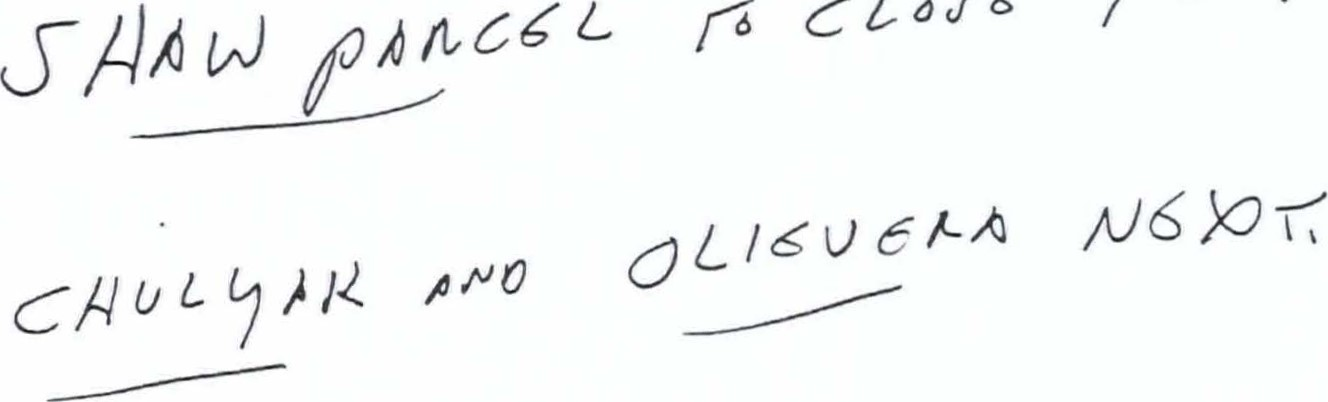 SHAW PARCEL TO CLOSE
CHULYAK AND OLIEVERA NEXT.